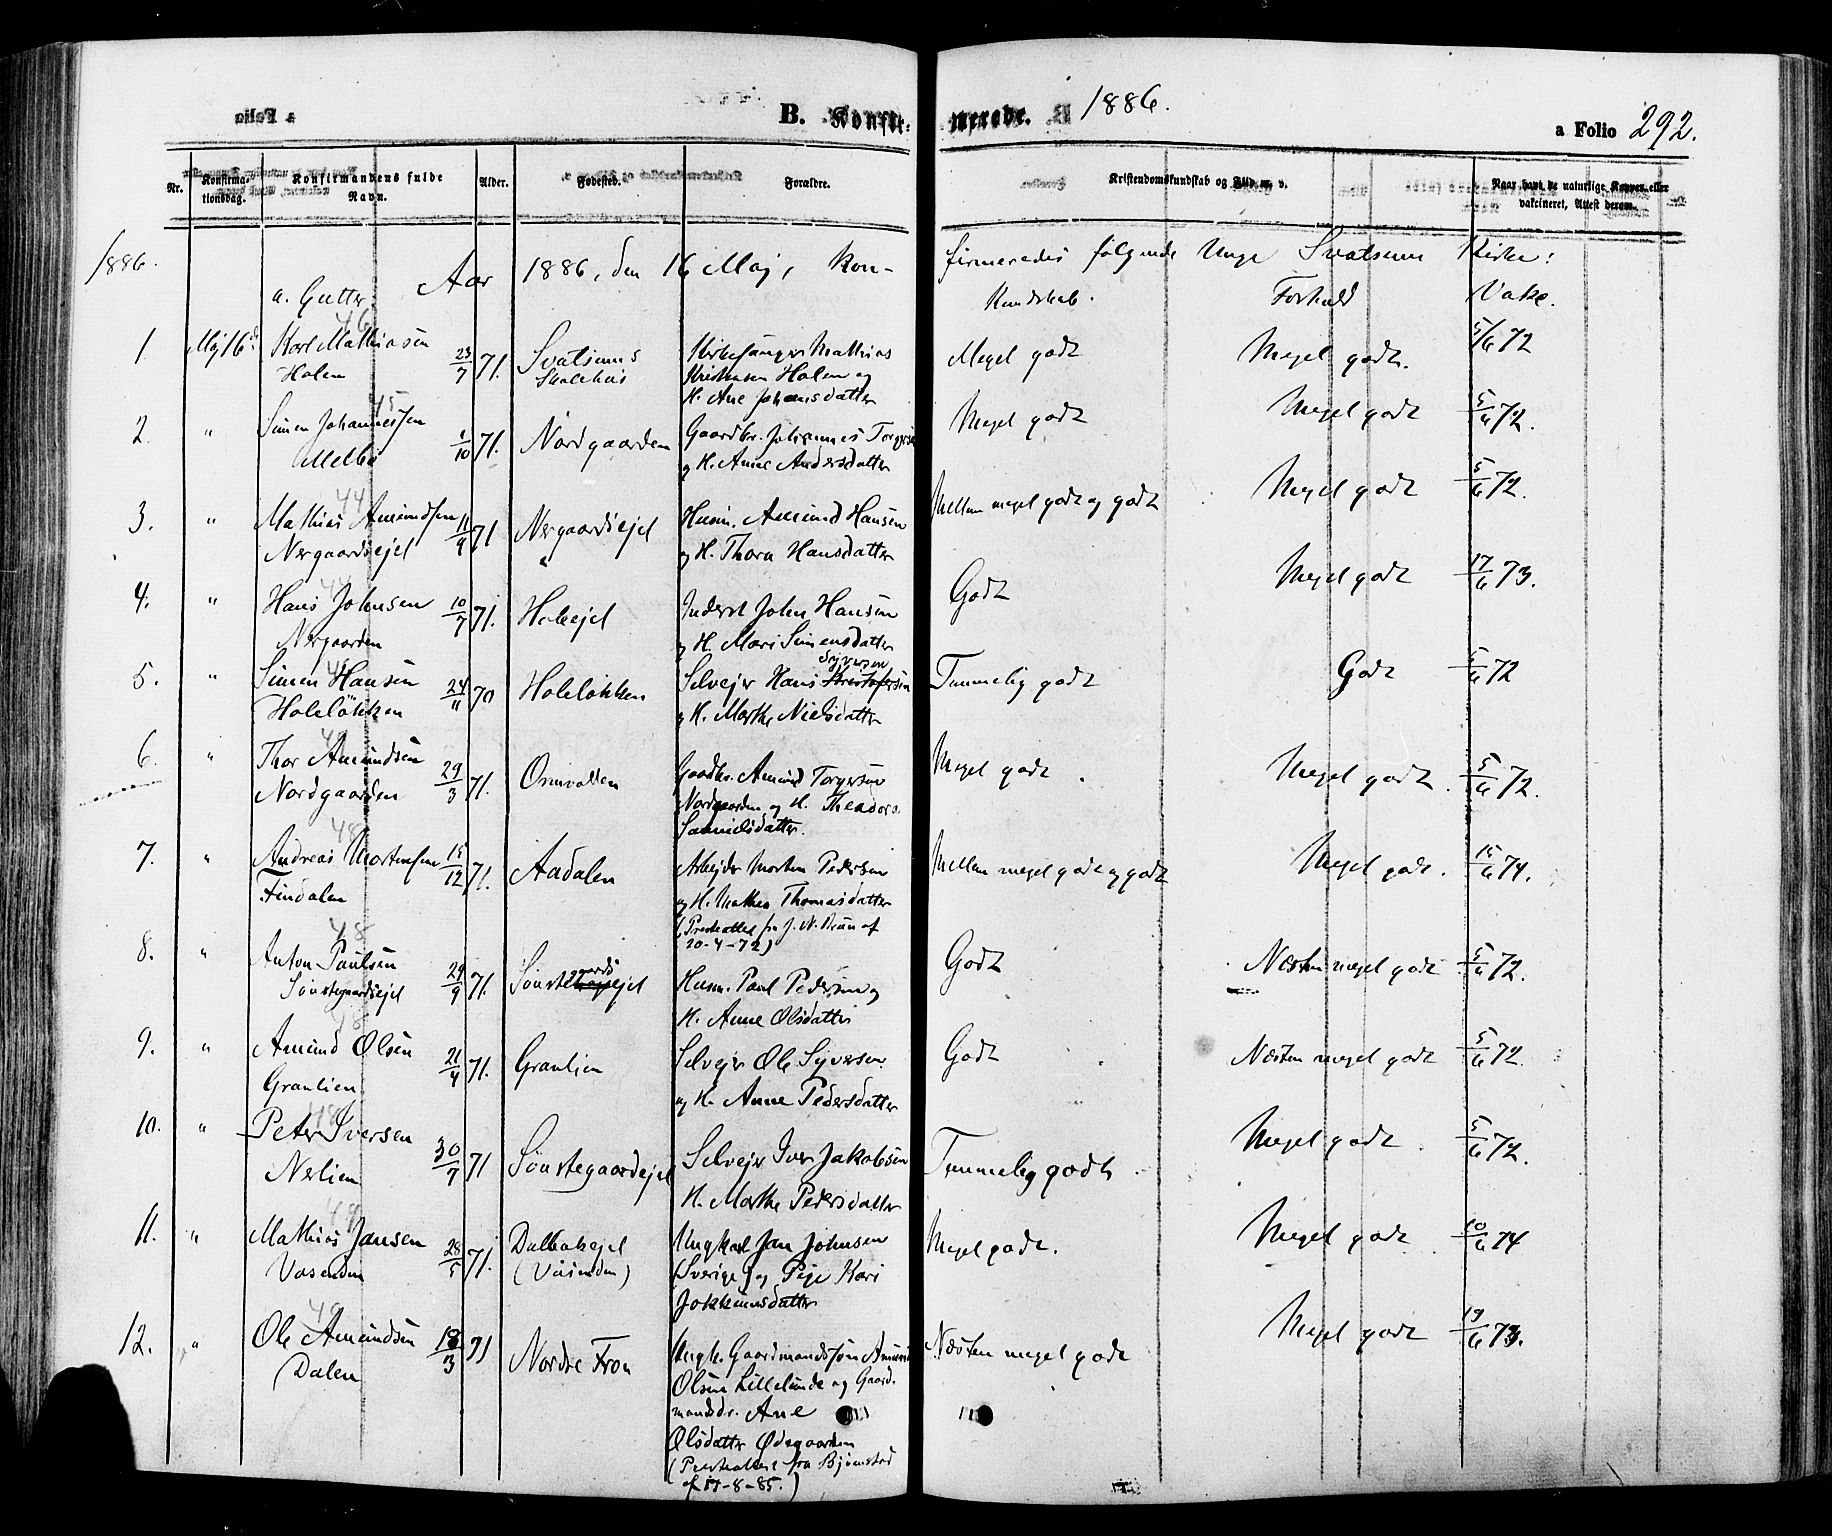 B. Konfir: merede. 1886.
a Folio 292.
Nr. Konfirmationsdag. Konfirmandens fulde Navn. Alder. Fødested. Forældre. Kristendomskundskab og Flid m. v. Naar havt de naturlige Kopper eller vakcineret, Attest derom.
1886. Aar 1886, den 16 Maj, kon- firmeredes følgende Unge Svatsum Kirke:
a. Gutter Kundskab. Forhold Vakc.
46
1. Maj 16d. Karl Mathiasen 23/7 71. Svatsums Kirkesanger Mathias Meget godt Meget godt. 5/6 72
Holen Skolehus Kristiansen Holen og
H. Ane Johansdatter
45
2. " Simen Johannessen 1/10 71. Nordgaarden Gaardbr. Johannes Torgersen Meget godt Meget godt 5/6 72.
Melbø og H. Anne Andersdatter
44
3. " Mathias Amundsen 11/9 71 Nergaardsejet Husm. Amund Hansen Mellem meget godt og godt Meget godt 5/6 72.
Nergaardsejet og H. Thora Hansdatter
44
4. " Hans Johnsen 10/7 71. Holsejet Inderst John Hansen Godt Meget godt 17/6 73.
Nergaarden og H. Mari Simensdatter
5. " Simen Hansen 24/11 70 Holeløkken Selvejer Hans Syversen Temmelig godt Godt 5/6 72
Holeløkken og H. Marthe Nielsdatter
6. " Thor Amundsen 29/3 71. Osmvolden Gaardbr. Amund Torgersen Meget godt. Meget godt. 5/6 72.
Nordgaarden Nordgaarden og H. Theodora
Samuelsdatter.
48
7. " Andreas Mortensen 15/12 71. Aadalen Arbejder Morten Pedersen Mellem meget godt og godt Meget godt. 15/6 74.
Findalen og H. Mathea Thomasdatter
(Presteattest fr J. N. Brun af
20-4-72)
48
8. " Anton Paulsen 29/9 71. Sønstegaardsejet Husm. Paul Pedersen og Godt Næsten meget godt 5/6 72.
Sønstegaardsejet H. Anne Olsdatter
48
9. " Amund Olsen 21/4 71. Granlien Selvejer Ole Syversen Godt Næsten meget godt 5/6 72.
Granlien og H. Anne Pedersdatter
48
10. " Peter Iversen 30/7 71 Sønstegaardsejet Selvejer Iver Jakobsen Temmelig godt Meget godt 5/6 72.
Nerlien H. Marthe Pedersdatter
49
11. " Mathias Jansen 28/5 71. Dalbakejet Ungkarl Jan Johnsen Meget godt. Meget godt 10/6 74
Vasenden (Vasenden) (Sverige) og Pige Kari
Jokkumsdatter
49
12. " Ole Amundsen 18/3 71 Nordre Fron Ungk. Gaardmandssøn Amund Næsten meget godt Meget godt 19/6 73.
Dalen Olsen Lillelunde og Gaard-
mandsdr. Ane
Olsdatter Ødegaarden
(Presteattest fra Bjørnstad
af 17-8-85.)